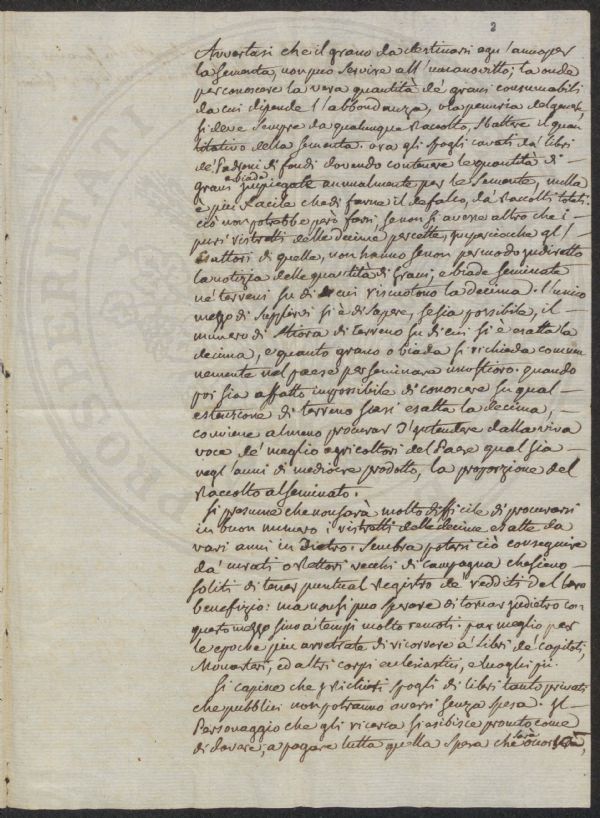 2
Avvertasi che il grano da destinarsi ogn'anno per
la sementa, non può servire all'umano vitto; la onde
per conoscere la vera quantità de' grani consumabili
da cui dipende l'abbondanza, o la penuria del genere
si deve sempre da qualunque Raccolto, sbattere il quan-
titativo della sementa. Ora gli spogli cavati da' libri
de' Padroni di fondi dovendo contenere le quantità di
grani e biade impiegate annualmente per le semente, nulla
è più facile che di farne il defalco, da' Raccolti totali.
ciò non potrebbe però farsi, se non si avesse altro che i
puri ristretti delle decime percette, imperciocche gl'
Esattori di quelle, non hanno se non per modo indiretto
la notizia delle quantità di Grani, e biade seminate
ne' terreni su di cui riscuotono la decima. l'unico
mezzo di supplirvi si è di sapere, se sia possibile, il
numero di Stiora di terreno su di cui si è esatta la
decima, e quanto grano o biada si richieda comu-
nemente nel paese per seminare uno stioro. quando
poi sia affatto impossibile di conoscere su qual
estenzione di terreno siasi esatta la decima,
conviene almeno procurar d'intendere dalla viva
voce de' meglio agricoltori del Paese qual sia
negl'anni di mediocre prodotto, la proporzione del
Raccolto al seminato.
Si presume che non sarà molto difficile di procurarsi
in buon numero i ristretti delle decime esatte da
varj anni in Dietro. Sembra potersi ciò conseguire
da' curati o Rettori vecchi di campagna che sieno
soliti di tener puntual Registro de' redditi del loro
benefizio: ma non si può sperare di tornar indietro con
questo mezzo sino a' tempi molto remoti: par meglio per
le epoche più arretrate di ricorrere a' libri de' Capitoli,
Monasteri, ed altri corpi eclesiastici, e luoghi pii.
Si capisce che i richiesti spogli di libri tanto privati
che pubblici non potranno aversi senza spesa. Il
Personaggio che gli ricerca si esibisce pronto come
di dovere, a pagare tutta quella spesa che sarà